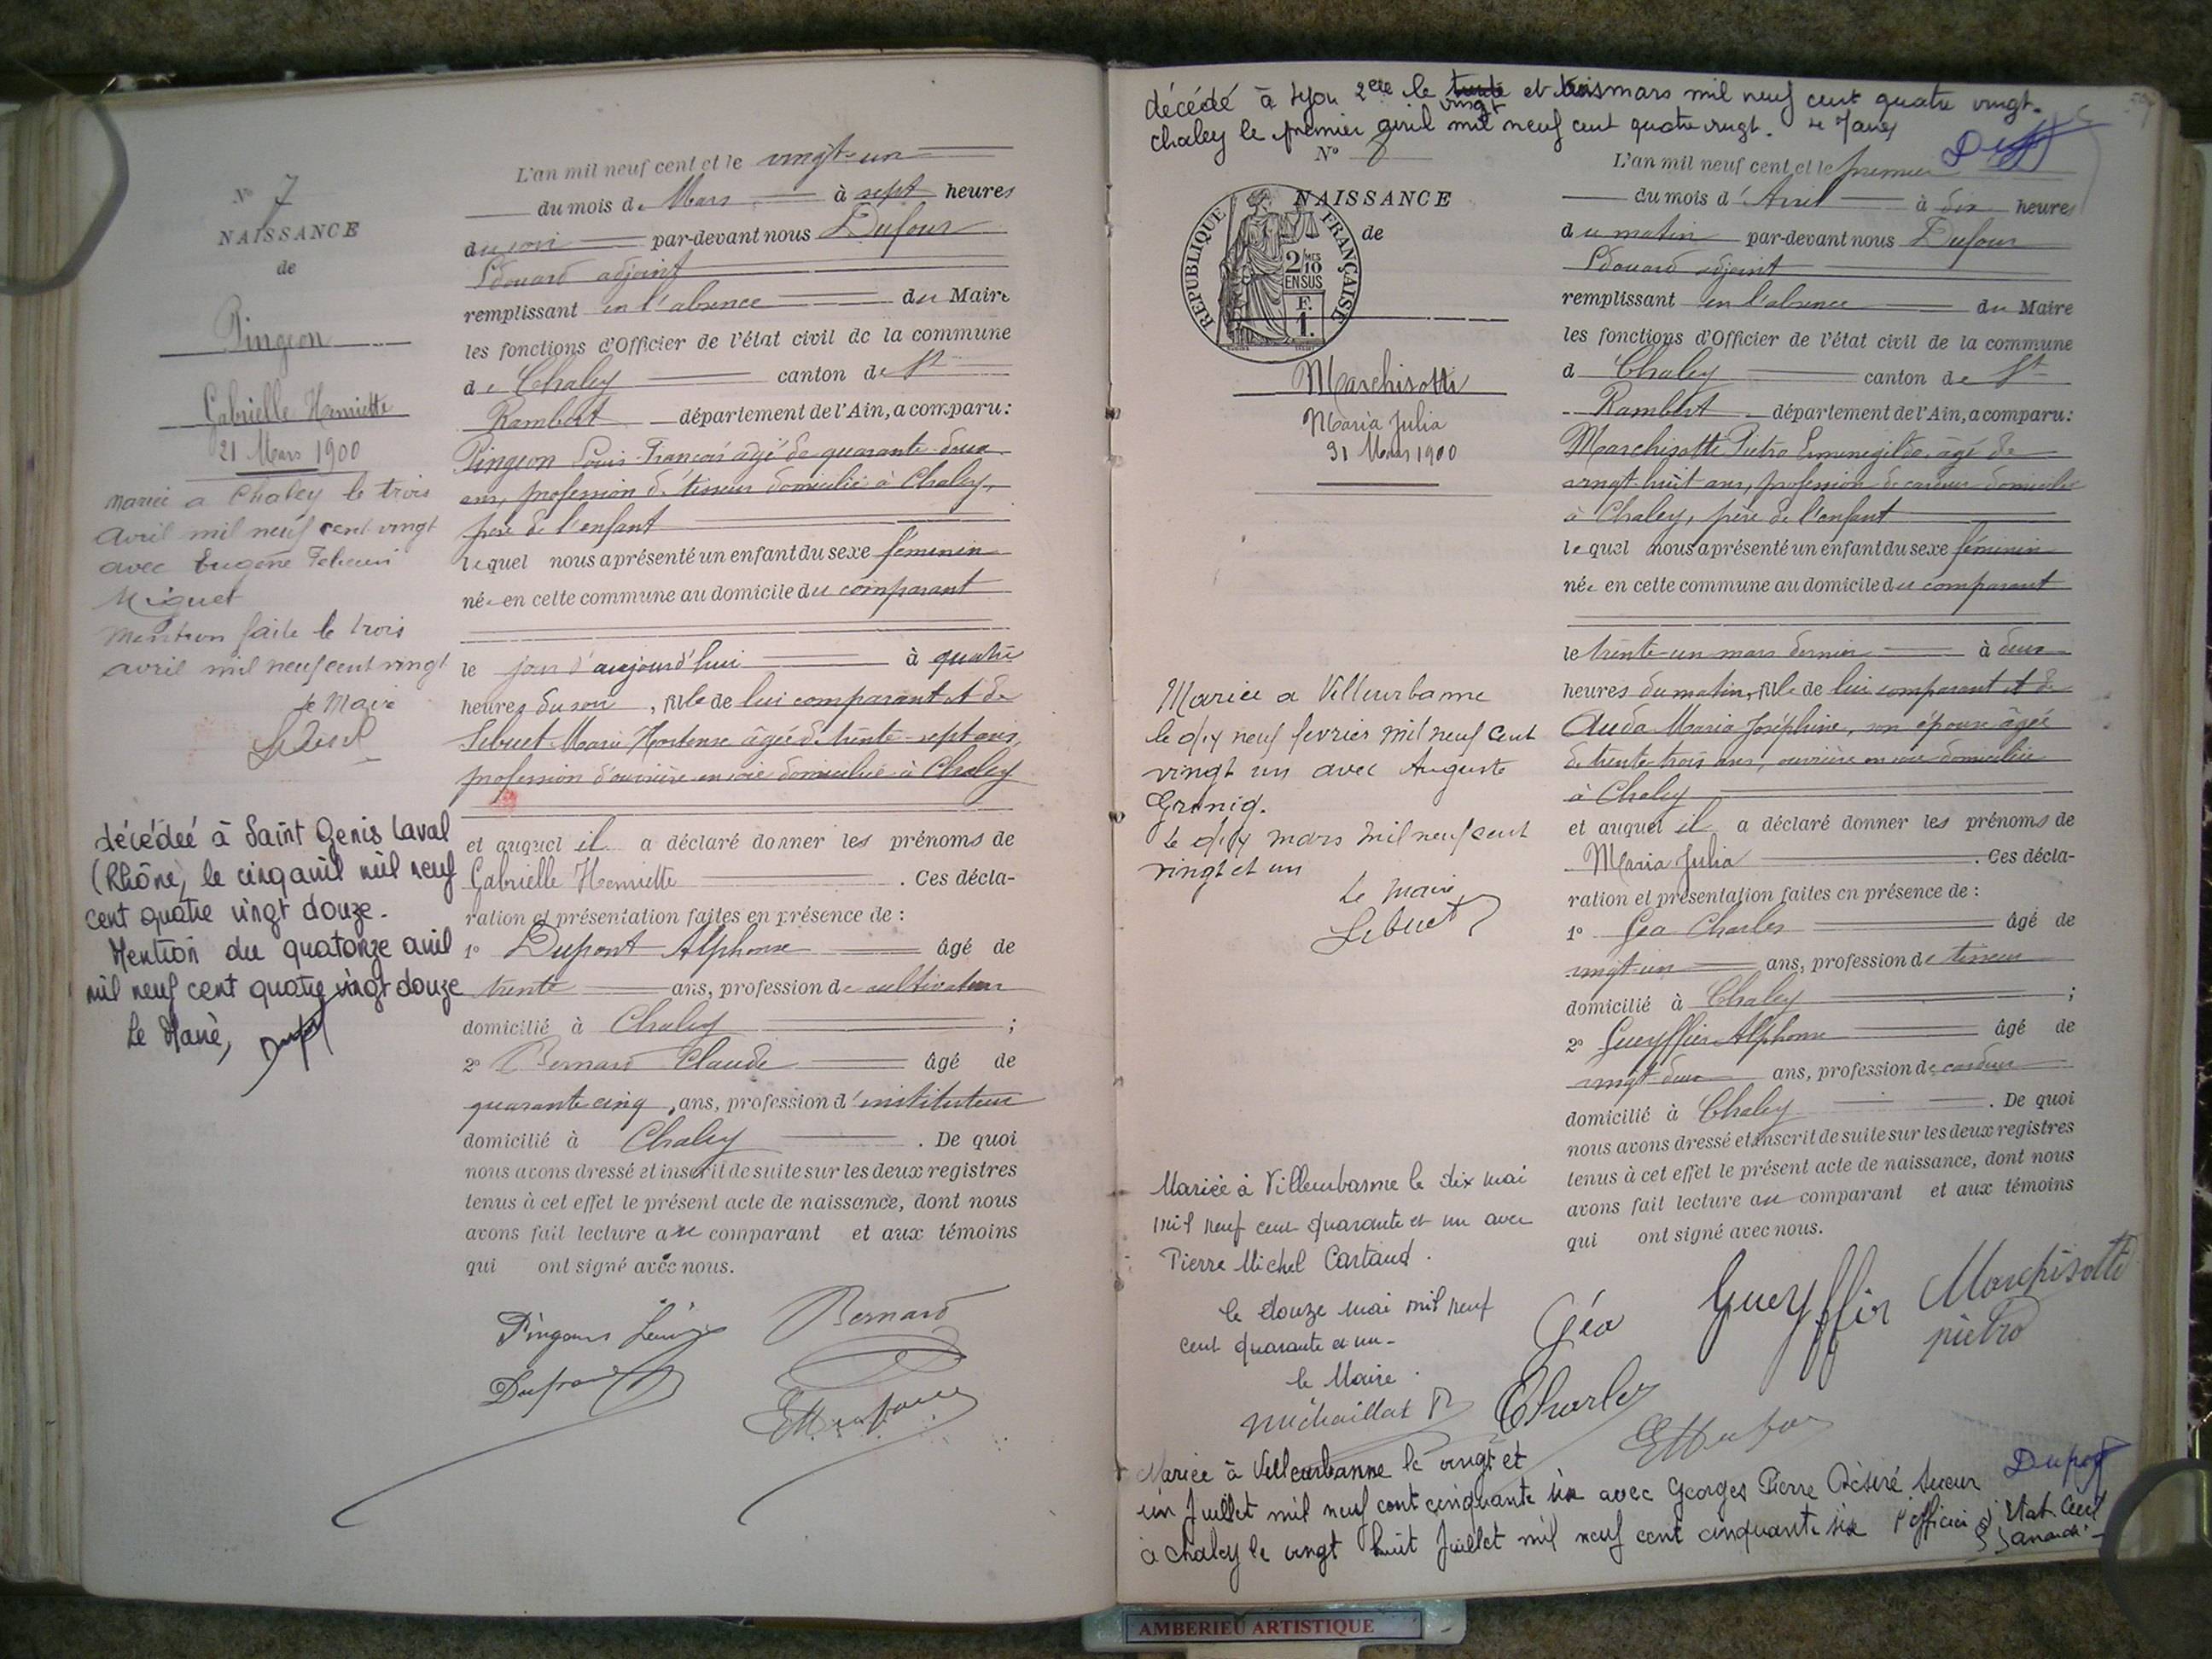 N° 7
NAISSANCE
de
Pingeon
Gabrielle Henriette
21 Mars 1900
Mariée à Chaley le trois
avril mil neuf cent vingt
avec Eugène
Miguet
Mention faite le trois
avril mil neuf cent vingt
le Maire
décédée à Saint Genis Laval
(Rhône), le cinq avril mil neuf
cent quatre vingt douze.
Mention du quatorze avril
mil neuf cent quatre vingt douze
Le Maire,
L'an mil neuf cent et le vingt-un
du mois de Mars à sept heures
du soir par-devant nous Dufour
Edouard adjoint
remplissant en l'absence du Maire
les fonctions d'Officier de l'état civil de la commune
de Chaley canton de St
Rambert département de l'Ain, a comparu :
Pingeon Louis François âgé de quarante-deux
ans, profession de tisseur domicilié à Chaley,
père de l'enfant
lequel nous a présenté un enfant du sexe féminin
née en cette commune au domicile du comparant
le jour d'aujourd'hui à quatre
heures du soir, fille de lui comparant et de
Lebuet Marie Hortense âgée de trente-sept ans,
profession d'ouvrière en soie domiciliée à Chaley
et auquel il a déclaré donner les prénoms de
Gabrielle Henriette . Ces décla-
ration et présentation faites en présence de :
1° Dupont Alphonse âgé de
trente ans, profession de cultivateur
domicilié à Chaley ;
2° Bernard Claude âgé de
quarante cinq, ans, profession d'instituteur
domicilié à Chaley . De quoi
nous avons dressé et inscrit de suite sur les deux registres
tenus à cet effet le présent acte de naissance, dont nous
avons fait lecture au comparant et aux témoins
qui ont signé avec nous.
Bernard
décédé à Lyon 2ème le trente et trois mars mil neuf cent quatre vingt.
vingt
Chaley le premier avril mil neuf cent quatre vingt. Le Maire
N° 8
NAISSANCE
de
REPUBLIQUE FRANÇAISE
2/10 MES
EN SUS
F.
1.
Marchisotti
Maria Julia
31 Mars 1900
Mariée a Villeurbanne
le dix neuf fevrier mil neuf cent
vingt un avec Auguste
le dix mars mil neuf cent
vingt et un
Le Maire
Lebuet
Mariée à Villeurbanne le dix mai
mil neuf cent quarante et un avec
Pierre Michel Cartaud.
le douze mai mil neuf
cent quarante et un-
le Maire.
Michaillat
L'an mil neuf cent et le premier
du mois d'Avril à dix heures
du matin par-devant nous Dufour
Edouard adjoint
remplissant en l'absence du Maire
les fonctions d'Officier de l'état civil de la commune
d Chaley canton de St
Rambert département de l'Ain, a comparu :
Marchisotti Pietro Ermenegildo, âgé de
vingt huit ans, profession de cardeur domicilié
à Chaley, père de l'enfant
lequel nous a présenté un enfant du sexe féminin
née en cette commune au domicile du comparant
le trente-un mars dernier à deux
heures du matin, fille de lui comparant et de
Auda Maria Joséphine, son épouse âgée
de trente trois ans, ouvrière en soie domiciliée
à Chaley
et auquel il a déclaré donner les prénoms de
Maria Julia . Ces décla-
ration et présentation faites en présence de :
1° Géa Charles âgé de
vingt-un ans, profession de tisseur
domicilié à Chaley ;
2° Gueyffier Alphonse âgé de
vingt-deux ans, profession de cardeur
domicilié à Chaley . De quoi
nous avons dressé et inscrit de suite sur les deux registres
tenus à cet effet le présent acte de naissance, dont nous
avons fait lecture au comparant et aux témoins
qui ont signé avec nous.
Géa Gueyffier Marchisotti
pietro
Charles
Mariée à Villeurbanne le vingt et
un Juillet mil neuf cent cinquante six avec Georges Pierre Désiré
à Chaley le vingt huit Juillet mil neuf cent cinquante six l'officier d'Etat Civil
AMBERIEU ARTISTIQUE